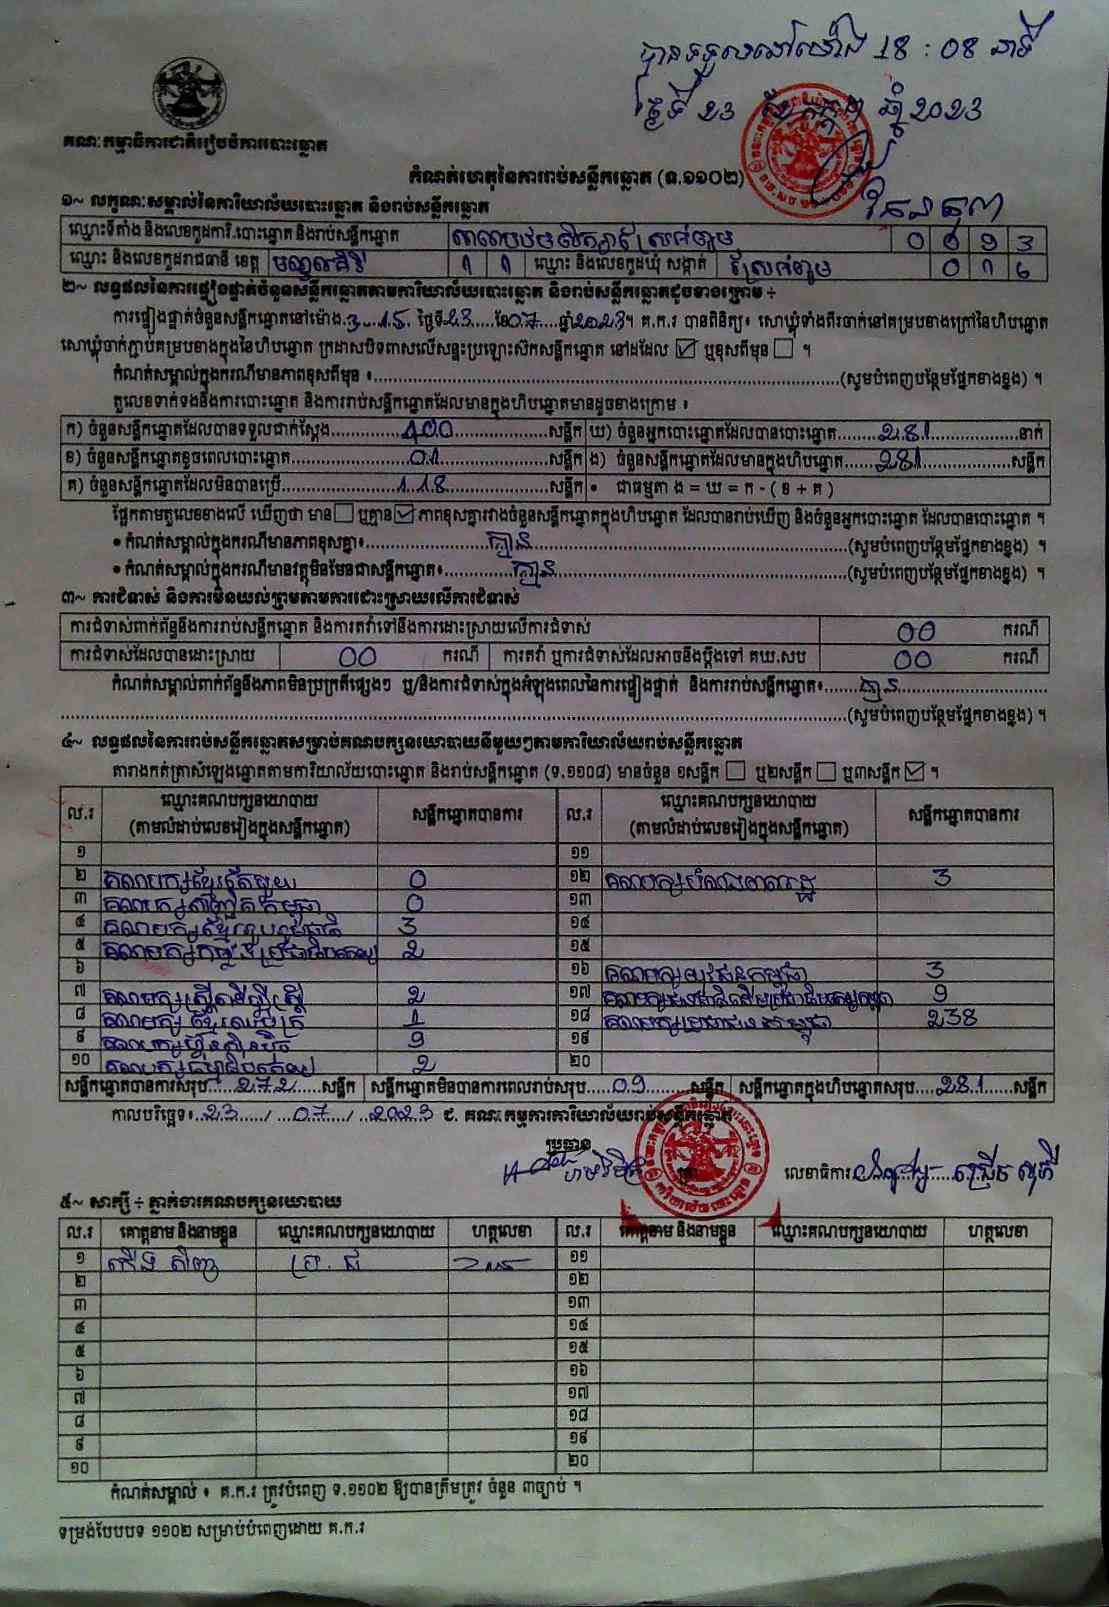 បានទទួលនៅម៉ោង 18 : 08 នាទី
ថ្ងៃទី 23 ឆ្នាំ 2023
គណៈកម្មាធិការជាតិរៀបចំការបោះឆ្នោត
កំណត់ហេតុនៃការរាប់សន្លឹកឆ្នោត (ទ.១១០២)
១~ លក្ខណៈសម្គាល់នៃការិយាល័យបោះឆ្នោត និងរាប់សន្លឹកឆ្នោត
ឈ្មោះទីតាំង និងលេខកូដការិ.បោះឆ្នោត និងរាប់សន្លឹកឆ្នោត សាលាបឋមសិក្សាស្រែអំពូម 0 0 9 3
ឈ្មោះ និងលេខកូដរាជធានី ខេត្ត មណ្ឌលគិរី 1 1 ឈ្មោះ និងលេខកូដឃុំ សង្កាត់ ស្រែអំពូម 0 1 6
២~ លទ្ធផលនៃការផ្ទៀងផ្ទាត់ចំនួនសន្លឹកឆ្នោតតាមការិយាល័យបោះឆ្នោត និងរាប់សន្លឹកឆ្នោតដូចខាងក្រោម ÷
ការផ្ទៀងផ្ទាត់ចំនួនសន្លឹកឆ្នោតនៅម៉ោង.3...15. ថ្ងៃទី23.....ខែ07.....ឆ្នាំ2023។ គ.ក.រ បានពិនិត្យ៖ សោឃ្លុំទាំងពីរចាក់នៅគម្របខាងក្រៅនៃហិបឆ្នោត
សោឃ្លុំចាក់ភ្ជាប់គម្របខាងក្នុងនៃហិបឆ្នោត ក្រដាសបិទពាសលើសន្ទះប្រឡោះស៊កសន្លឹកឆ្នោត នៅដដែល ☑ ឬខុសពីមុន ☐ ។
កំណត់សម្គាល់ក្នុងករណីមានភាពខុសពីមុន ៖........(សូមបំពេញបន្ថែមផ្នែកខាងខ្នង) ។
តួលេខទាក់ទងនឹងការបោះឆ្នោត និងការរាប់សន្លឹកឆ្នោតដែលមានក្នុងហិបឆ្នោតមានដូចខាងក្រោម ៖
ក) ចំនួនសន្លឹកឆ្នោតដែលបានទទួលជាក់ស្តែង........400........សន្លឹក ឃ) ចំនួនអ្នកបោះឆ្នោតដែលបានបោះឆ្នោត........281........នាក់
ខ) ចំនួនសន្លឹកឆ្នោតខូចពេលបោះឆ្នោត........01........សន្លឹក ង) ចំនួនសន្លឹកឆ្នោតដែលមានក្នុងហិបឆ្នោត......281........សន្លឹក
គ) ចំនួនសន្លឹកឆ្នោតដែលមិនបានប្រើ........118........សន្លឹក • ជាធម្មតា ង = ឃ = ក - ( ខ + គ )
ផ្អែកតាមតួលេខខាងលើ ឃើញថា មាន ☐ ឬគ្មាន ☑ ភាពខុសគ្នារវាងចំនួនសន្លឹកឆ្នោតក្នុងហិបឆ្នោត ដែលបានរាប់ឃើញ និងចំនួនអ្នកបោះឆ្នោត ដែលបានបោះឆ្នោត ។
• កំណត់សម្គាល់ក្នុងករណីមានភាពខុសគ្នា៖........គ្មាន........(សូមបំពេញបន្ថែមផ្នែកខាងខ្នង) ។
• កំណត់សម្គាល់ក្នុងករណីមានវត្ថុមិនមែនជាសន្លឹកឆ្នោត៖........គ្មាន........(សូមបំពេញបន្ថែមផ្នែកខាងខ្នង) ។
៣~ ការជំទាស់ និងការមិនយល់ព្រមតាមការដោះស្រាយលើការជំទាស់
ការជំទាស់ពាក់ព័ន្ធនឹងការរាប់សន្លឹកឆ្នោត និងការតវ៉ាទៅនឹងការដោះស្រាយលើការជំទាស់ 00 ករណី
ការជំទាស់ដែលបានដោះស្រាយ 00 ករណី ការតវ៉ា ឬការជំទាស់ដែលអាចនឹងប្តឹងទៅ គឃ.សប 00 ករណី
កំណត់សម្គាល់ពាក់ព័ន្ធនឹងភាពមិនប្រក្រតីផ្សេងៗ ឬ/និងការជំទាស់ក្នុងអំឡុងពេលនៃការផ្ទៀងផ្ទាត់ និងការរាប់សន្លឹកឆ្នោត៖......គ្មាន........
........(សូមបំពេញបន្ថែមផ្នែកខាងខ្នង) ។
៤~ លទ្ធផលនៃការរាប់សន្លឹកឆ្នោតសម្រាប់គណបក្សនយោបាយនីមួយៗតាមការិយាល័យរាប់សន្លឹកឆ្នោត
តារាងកត់ត្រាសំឡេងឆ្នោតតាមការិយាល័យបោះឆ្នោត និងរាប់សន្លឹកឆ្នោត (ទ.១១០៨) មានចំនួន ១សន្លឹក ☐ ឬ២សន្លឹក ☐ ឬ៣សន្លឹក ☑ ។
ល.រ ឈ្មោះគណបក្សនយោបាយ (តាមលំដាប់លេខរៀងក្នុងសន្លឹកឆ្នោត) សន្លឹកឆ្នោតបានការ ល.រ ឈ្មោះគណបក្សនយោបាយ (តាមលំដាប់លេខរៀងក្នុងសន្លឹកឆ្នោត) សន្លឹកឆ្នោតបានការ
១ ១១
២ គណបក្សខ្មែរតែមួយ 0 ១២ គណបក្សបំណងពលរដ្ឋ 3
៣ គណបក្ស កម្ពុជា 0 ១៣
៤ គណបក្សខ្មែររួបរួមជាតិ 3 ១៤
៥ គណបក្សកម្លាំងប្រជាធិបតេយ្យ 2 ១៥
៦ ១៦ គណបក្សយុវជនកម្ពុជា 3
៧ គណបក្សស្ត្រីដើម្បីស្ត្រី 2 ១៧ គណបក្ស 9
៨ គណបក្ស 1 ១៨ គណបក្សប្រជាជនកម្ពុជា 238
៩ គណបក្សហ៊្វុនស៊ិនប៉ិច 9 ១៩
១០ គណបក្សធម្មាធិបតេយ្យ 2 ២០
សន្លឹកឆ្នោតបានការសរុប....272.....សន្លឹក សន្លឹកឆ្នោតមិនបានការពេលរាប់សរុប.....09.....សន្លឹក សន្លឹកឆ្នោតក្នុងហិបឆ្នោតសរុប....281.....សន្លឹក
កាលបរិច្ឆេទ៖..23....../ ...07..../ ..2023 ជ. គណៈកម្មការការិយាល័យរាប់សន្លឹកឆ្នោត
ប្រធាន
លេខាធិការ
៥~ សាក្សី ÷ ភ្នាក់ងារគណបក្សនយោបាយ
ល.រ គោត្តនាម និងនាមខ្លួន ឈ្មោះគណបក្សនយោបាយ ហត្ថលេខា ល.រ គោត្តនាម និងនាមខ្លួន ឈ្មោះគណបក្សនយោបាយ ហត្ថលេខា
១ ប្រ.ជ ១១
២ ១២
៣ ១៣
៤ ១៤
៥ ១៥
៦ ១៦
៧ ១៧
៨ ១៨
៩ ១៩
១០ ២០
កំណត់សម្គាល់ ៖ គ.ក.រ ត្រូវបំពេញ ទ.១១០២ ឱ្យបានត្រឹមត្រូវ ចំនួន ៣ច្បាប់ ។
ទម្រង់បែបបទ ១១០២ សម្រាប់បំពេញដោយ គ.ក.រ